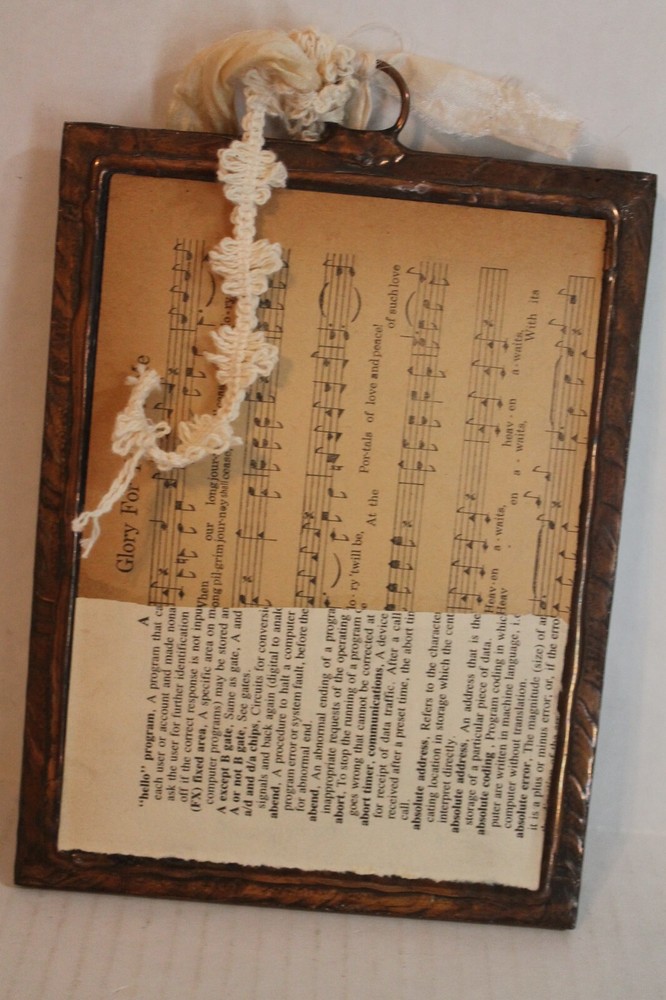 Glory For
When our long jour
ong pil-grim jour-ney shall cease,
o-ry
o-ry 'twill be,
At the Por-tals of love and peace!
of such love
Heav-en a-waits, heav-en a-waits,
Heav en a-waits, With its
A
"hello" program, A program that ca
each user or account and made nona
ask the user for further identification
off if the correct response is not inpu
(FX) fixed area, A specific area on m
computer programs) may be stored an
A except B gate, Same as gate, A and
A or not B gate, See gates.
a/d and d/a chips, Circuits for conversi
signals and back again (digital to analo
abend, A procedure to halt a computer
program error or system fault, before the
for abnormal end.
abend, An abnormal ending of a progra
inappropriate requests of the operating
abort, To stop the running of a program
goes wrong that cannot be corrected at
abort timer, communications, A device
for receipt of data traffic. After a call
received after a preset time, the abort tim
call.
absolute address, Refers to the character
cating location in storage which the cent
interpret directly.
absolute address, An address that is the
storage of a particular piece of data.
absolute coding, Program coding in which
puter are written in machine language, i.e
computer without translation.
absolute error, The magnitude (size) of an
it is a plus or minus error, or, if the error